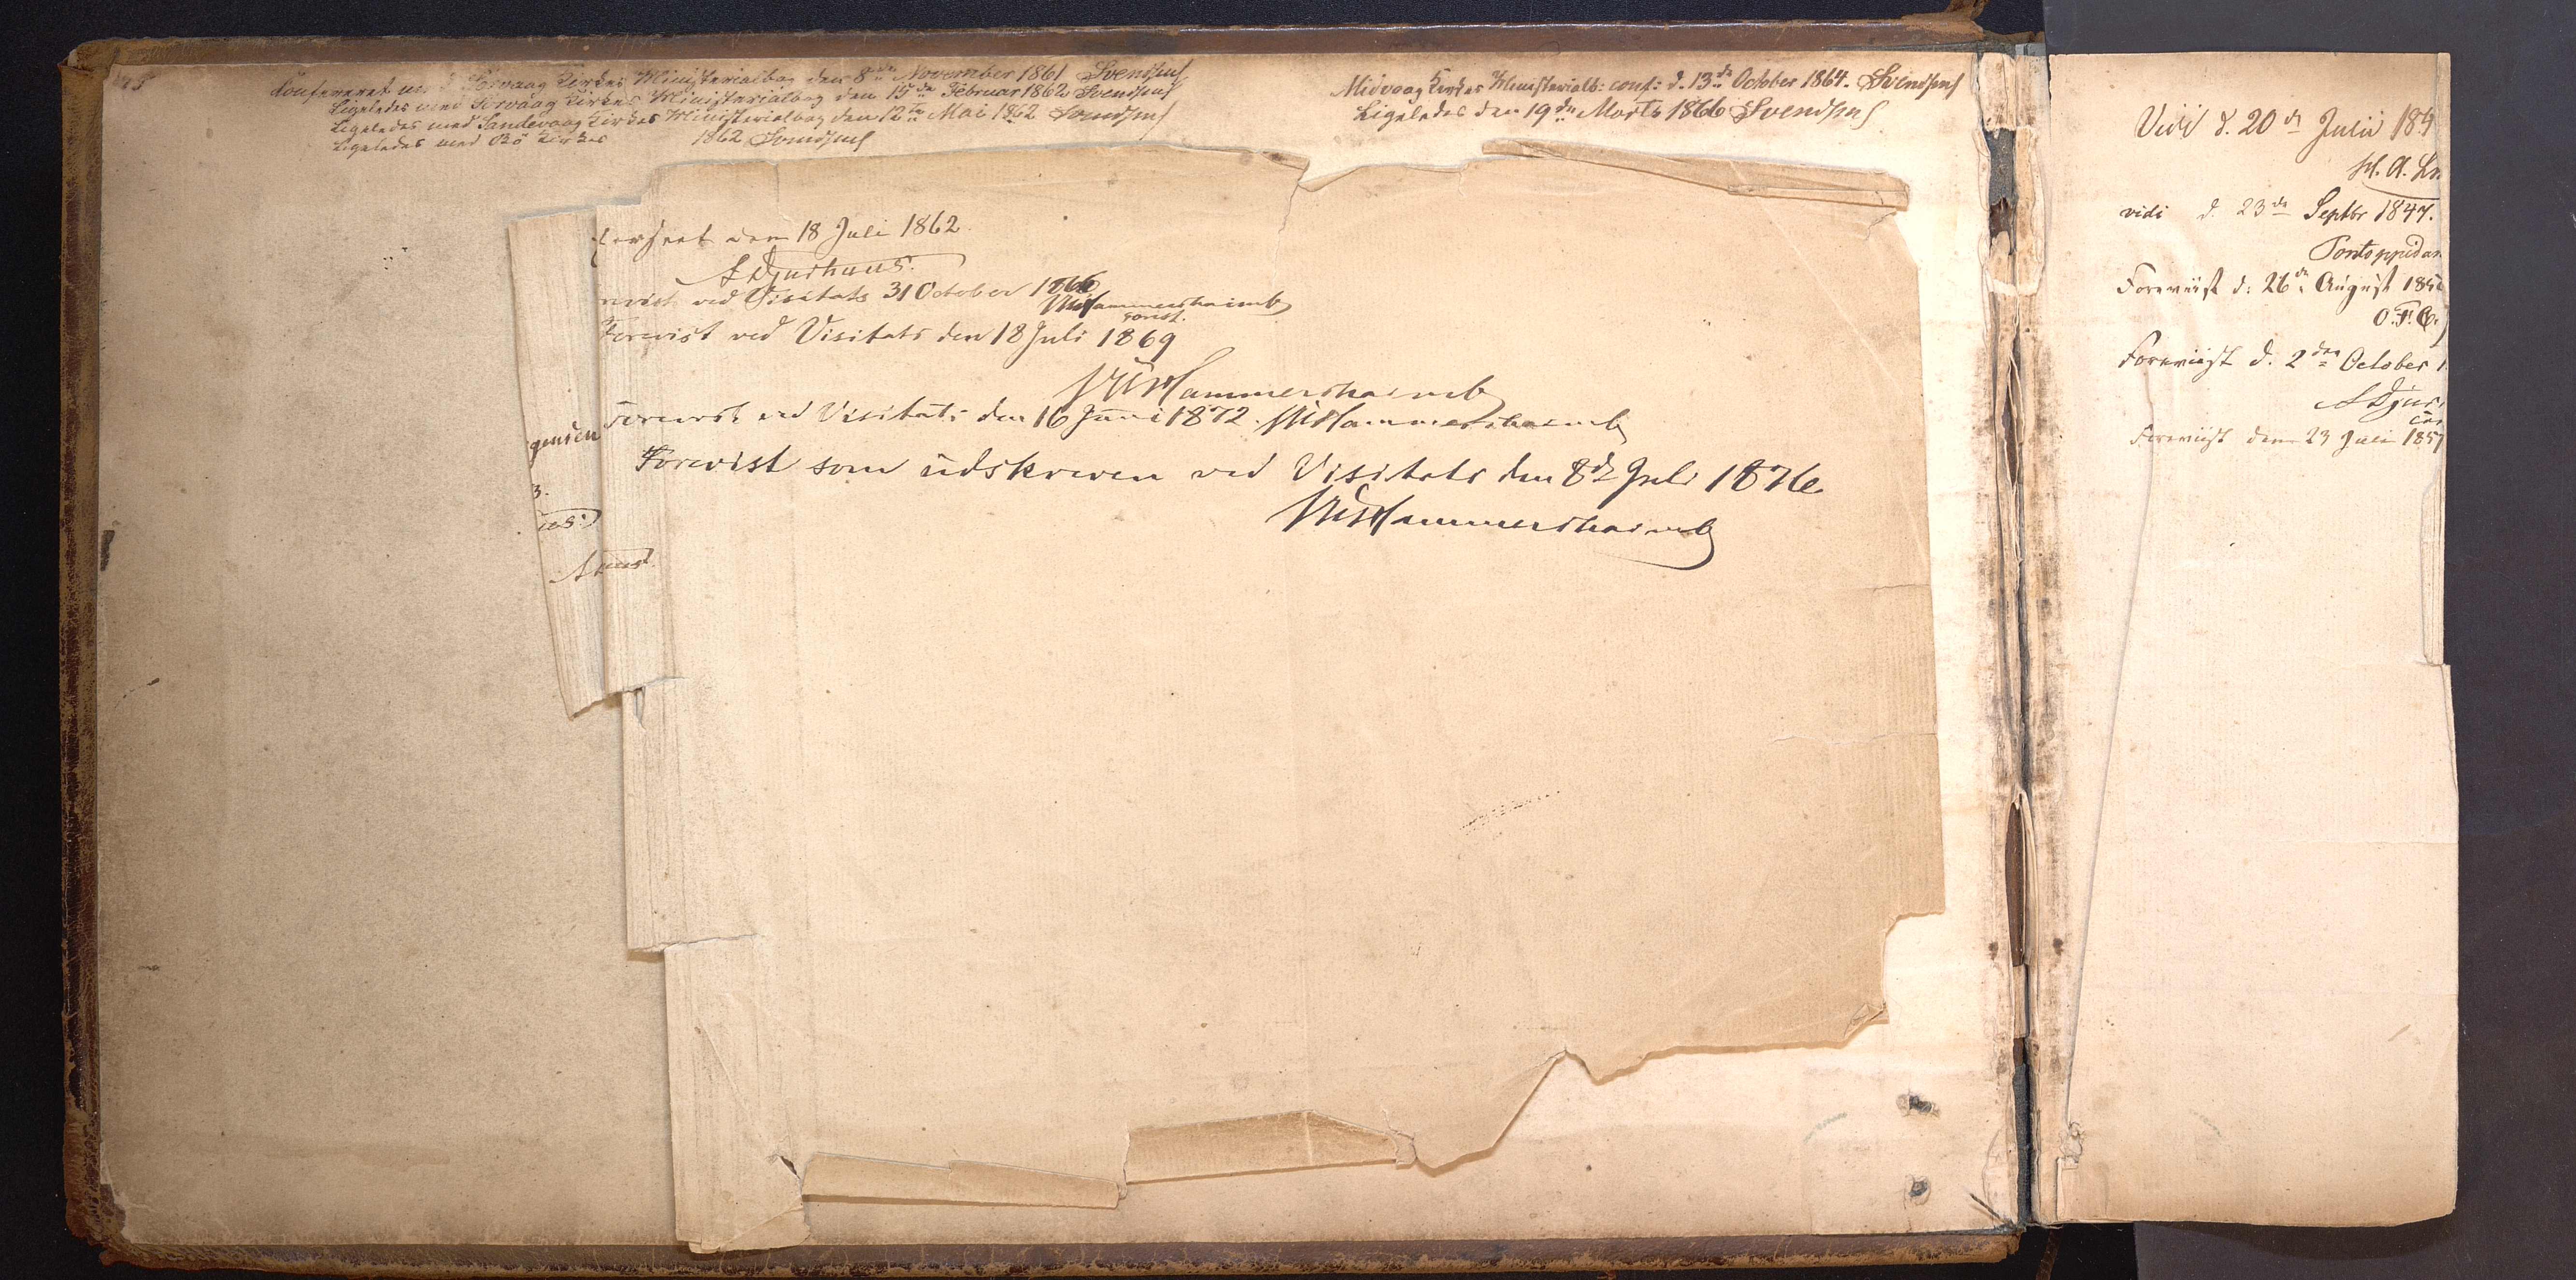 Confereret med Sörvaag Kirkes Ministerialbog den 8de November 1861 Svendsen
Ligeledes med Sörvaag Kirkes Ministerialbog den 15de Februar 1862 Svendsen
Ligeledes med Sandevaag Kirkes Ministerialbog den 12te Mai 1862 Svendsen
Ligeledes med Bö Kirkes 1862 Svendsen
Midvaag Kirkes Ministerialb: conf: d. 13de October 1864. Svendsen
Ligeledes den 19de Marts 1866 Svendsen
den 18 Juli 1862.
A Djurhuus.
ved Visitats 31 October 1866
VUHammershaimb
const.
Forevist ved Visitats den 18 Juli 1869
VUHammershaimb
Forevist ved Visitats den 16 Juni 1872. VUHammershaimb
Forevist som udskreven ved Visitats den 8de Juli 1876.
VUHammershaimb
gensen
3.
us.
Vidi d. 20de Julii 184
vidi d. 23de Septbr 1847.
Pontoppidan
Foreviist d: 26de August 185
O. F.
Foreviist d. 2den October 1
A Djur
Foreviist den 23 Juli 1857